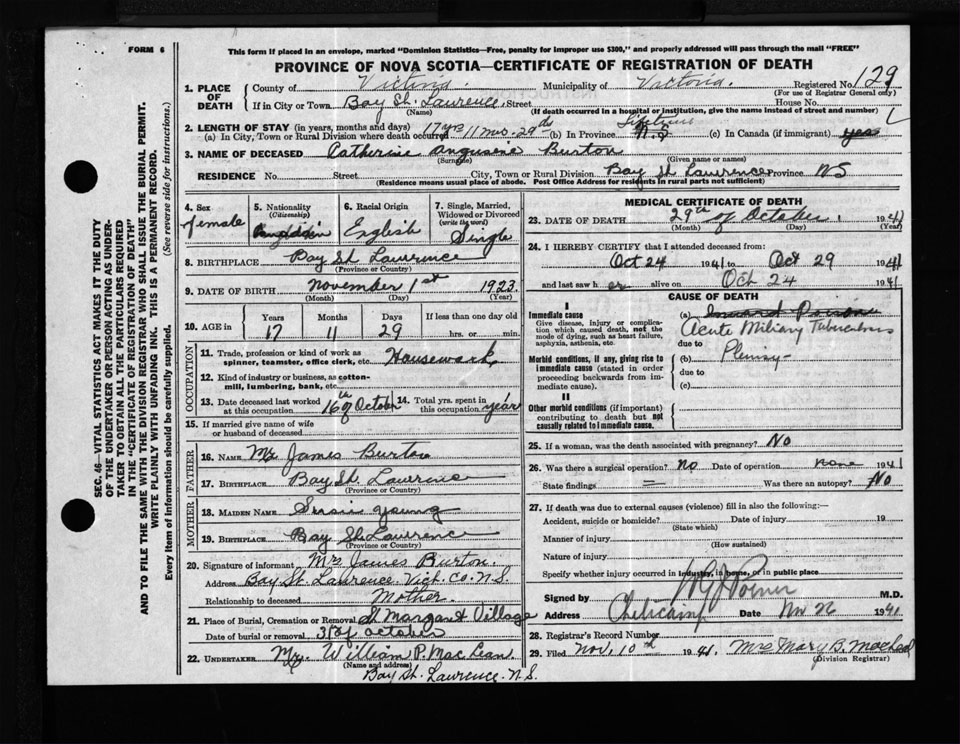 FORM 6
This form if placed in an envelope, marked "Dominion Statistics—Free, penalty for improper use $300," and properly addressed will pass through the mail "FREE"
PROVINCE OF NOVA SCOTIA—CERTIFICATE OF REGISTRATION OF DEATH
SEC. 46—VITAL STATISTICS ACT MAKES IT THE DUTY
OF THE UNDERTAKER OR PERSON ACTING AS UNDER-
TAKER TO OBTAIN ALL THE PARTICULARS REQUIRED
IN THE "CERTIFICATE OF REGISTRATION OF DEATH"
AND TO FILE THE SAME WITH THE DIVISION REGISTRAR WHO SHALL ISSUE THE BURIAL PERMIT.
WRITE PLAINLY WITH UNFADING INK. THIS IS A PERMANENT RECORD.
Every item of Information should be carefully supplied. (See reverse side for instructions.)
1. PLACE OF DEATH County of Victoria Municipality of Victoria. Registered No. 129
(For use of Registrar General only)
If in City or Town Bay St. Lawrence Street House No.
(Name) (If death occurred in a hospital or institution, give the name instead of street and number)
2. LENGTH OF STAY (in years, months and days)
(a) In City, Town or Rural Division where death occurred 17 yrs 11 mos. 29 ds (b) In Province Lifetime N.S (c) In Canada (if immigrant) yes
3. NAME OF DECEASED Catherine Angusene Burton
(Surname) (Given name or names)
RESIDENCE No. Street City, Town or Rural Division Bay St Lawrence Province NS
(Residence means usual place of abode. Post Office Address for residents in rural parts not sufficient)
4. Sex female
5. Nationality (Citizenship)
6. Racial Origin English
7. Single, Married, Widowed or Divorced (write the word) Single
8. BIRTHPLACE Bay St Lawrence
(Province or Country)
9. DATE OF BIRTH November 1st 1923
(Month) (Day) (Year)
10. AGE in Years 17 Months 11 Days 29 If less than one day old hrs. or min.
OCCUPATION
11. Trade, profession or kind of work as spinner, teamster, office clerk, etc. Housework
12. Kind of industry or business, as cotton-mill, lumbering, bank, etc.
13. Date deceased last worked at this occupation 16 of October 14. Total yrs. spent in this occupation year
15. If married give name of wife or husband of deceased
FATHER
16. NAME Mr James Burton
17. BIRTHPLACE Bay St. Lawrence
(Province or Country)
MOTHER
18. MAIDEN NAME Susie Young
19. BIRTHPLACE Bay St Lawrence
(Province or Country)
20. Signature of informant Mrs James Burton.
Address Bay St. Lawrence. Vict. Co. N.S.
Relationship to deceased Mother.
21. Place of Burial, Cremation or Removal St Margaret Village
Date of burial or removal 31 of October
22. UNDERTAKER Mr. William P. MacLean.
(Name and address)
Bay St. Lawrence. N.S.
MEDICAL CERTIFICATE OF DEATH
23. DATE OF DEATH 29th of October. 1941
(Month) (Day) (Year)
24. I HEREBY CERTIFY that I attended deceased from:
Oct 24 1941 to Oct 29 1941
and last saw her alive on Oct 24 1941
CAUSE OF DEATH
I
Immediate cause
Give disease, injury or complication which caused death, not the mode of dying, such as heart failure, asphyxia, asthenia, etc.
(a) Acute Miliary Tuberculosis
due to
Morbid conditions, if any, giving rise to immediate cause (stated in order proceeding backwards from immediate cause).
(b) Pleurisy
due to
(c)
II
Other morbid conditions (if important) contributing to death but not causally related to immediate cause.
25. If a woman, was the death associated with pregnancy? No
26. Was there a surgical operation? No Date of operation none 1941
State findings — Was there an autopsy? No
27. If death was due to external causes (violence) fill in also the following:—
Accident, suicide or homicide? Date of injury 19
(State which)
Manner of injury
(How sustained)
Nature of injury
Specify whether injury occurred in industry, in home, or in public place
Signed by M.D.
Address Date Nov 26 1941
28. Registrar's Record Number
29. Filed Nov. 10th 1941. Mrs Mary B.
(Division Registrar)